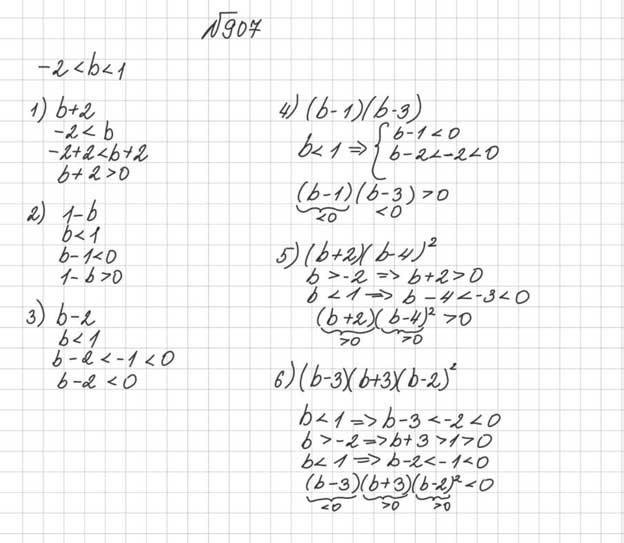 №907
-2 < b < 1
1) b+2
-2 < b
-2+2 < b+2
b+2 > 0
2) 1-b
b < 1
b-1 < 0
1-b > 0
3) b-2
b < 1
b-2 < -1 < 0
b-2 < 0
4) (b-1)(b-3)
b < 1 => { b-1 < 0
b-2 < -2 < 0
(b-1)(b-3) > 0
<0 <0
5) (b+2)(b-4)²
b > -2 => b+2 > 0
b < 1 => b-4 < -3 < 0
(b+2)(b-4)² > 0
>0 >0
6) (b-3)(b+3)(b-2)²
b < 1 => b-3 < -2 < 0
b > -2 => b+3 > 1 > 0
b < 1 => b-2 < -1 < 0
(b-3)(b+3)(b-2)² < 0
<0 >0 >0